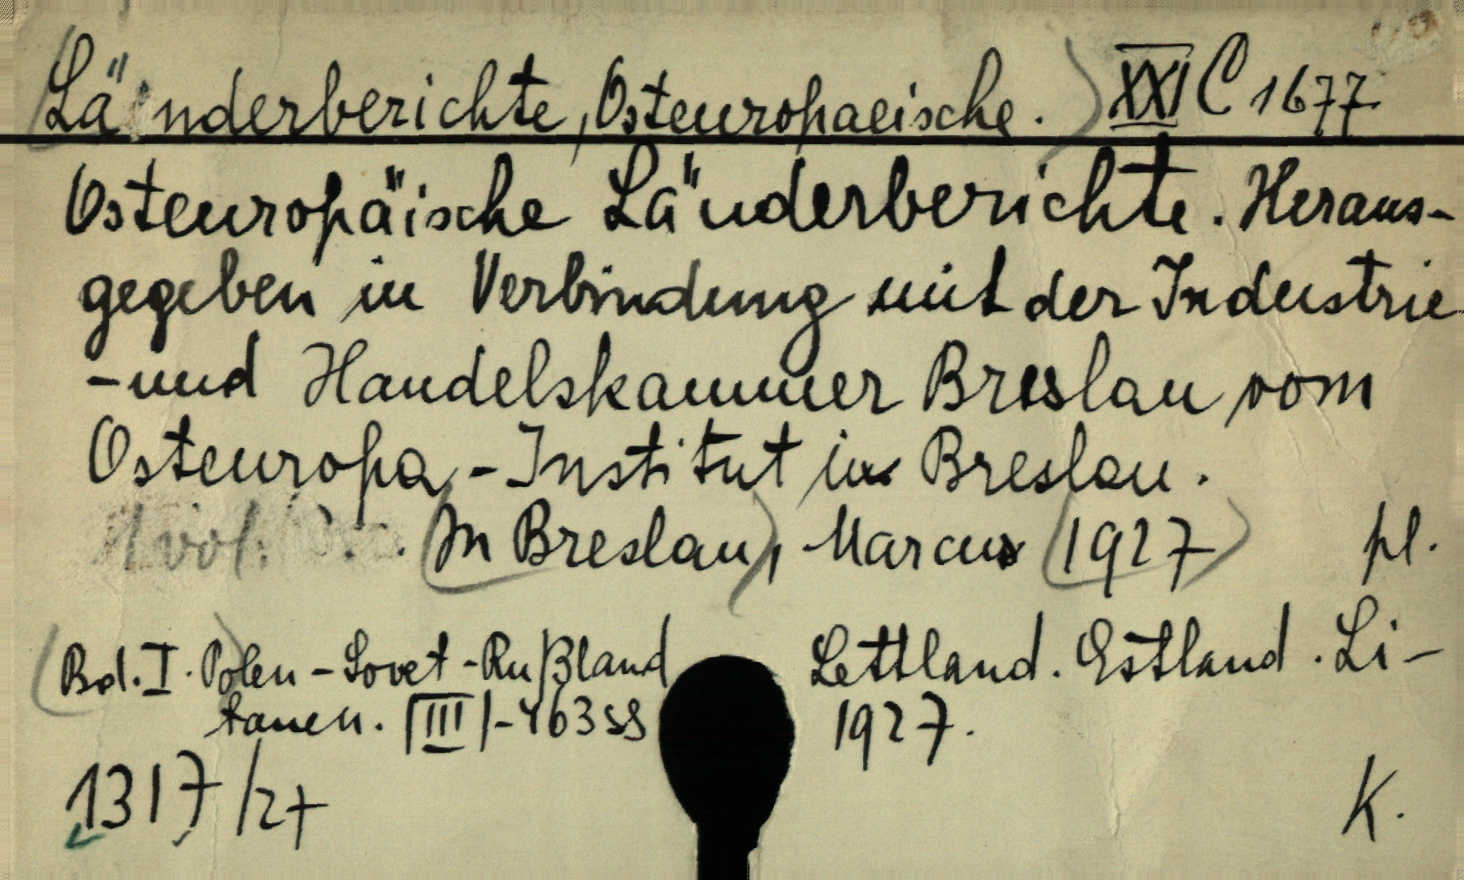 (Länderberichte, Osteuropaeische.) XXI C 1677
Osteuropäische Länderberichte. Heraus-
gegeben in Verbindung mit der Industrie
-und Handelskammer Breslau vom
Osteuropa-Institut in Breslau.
1 vol. (In Breslau), Marcus (1927) pl.
(Bd. I.) Polen-Sovet-Rußland Lettland. Estland. Li-
tauen. |III|-463 SS 1927.
1317/27
K.